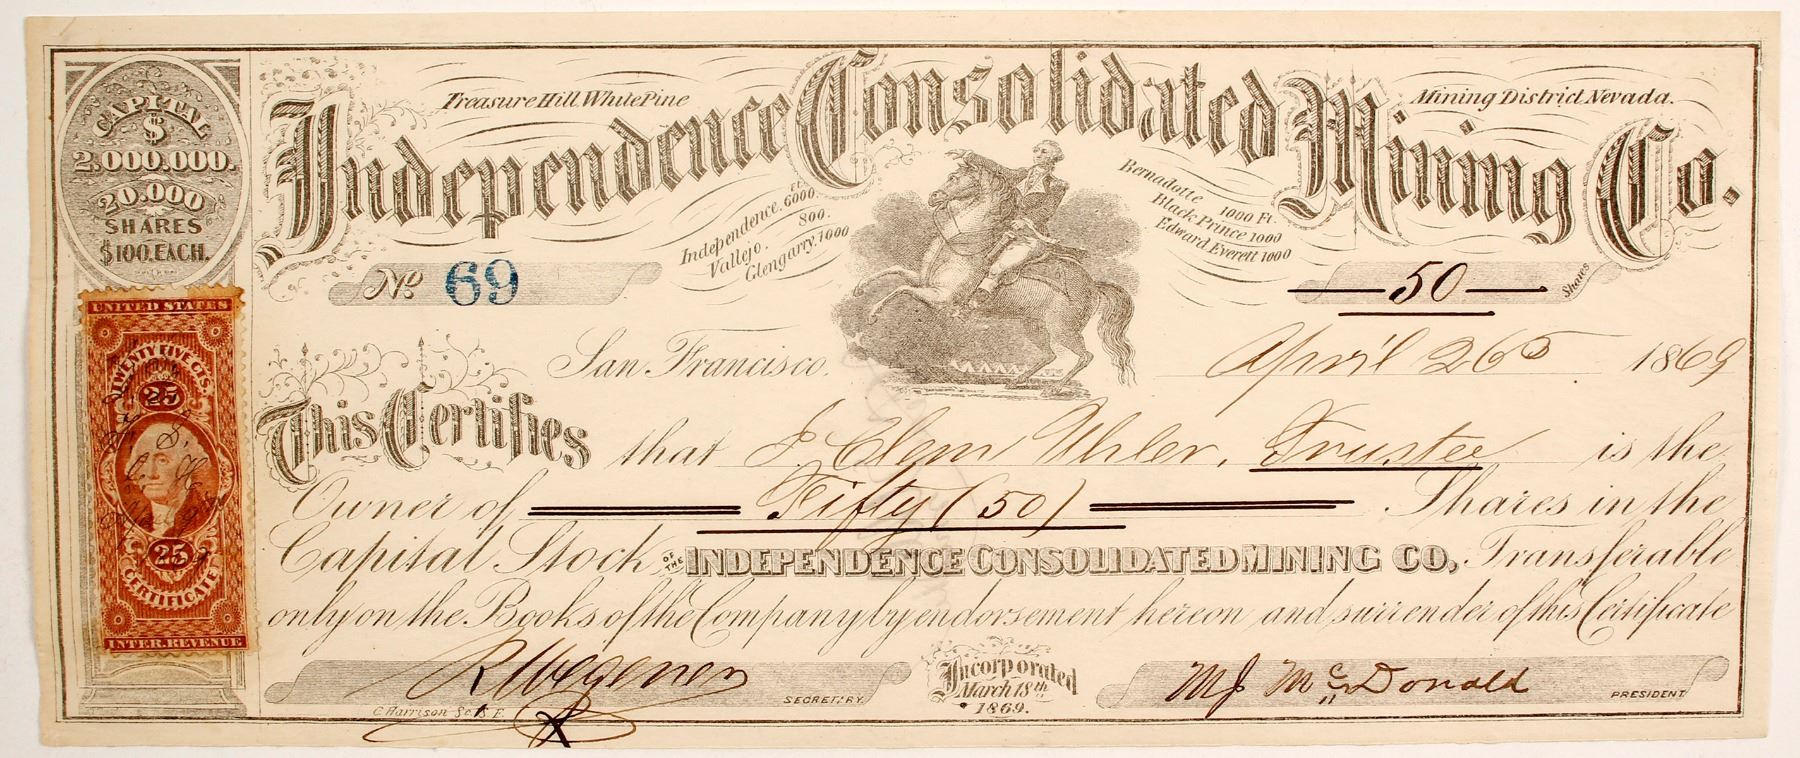 Treasure Hill White Pine
Mining District, Nevada.
Independence Consolidated Mining Co.
CAPITAL
$
2,000,000.
20.000
SHARES
$100. EACH.
Independence. 6000. Ft.
Vallejo. 800.
Glengarry. 1000
Bernadotte 1000 Ft.
Black Prince 1000
Edward Everett 1000
No. 69
50 Shares
San Francisco. April 26 1869
This Certifies that J Clem Uhler, Trustee is the
Owner of Fifty (50) Shares in the
Capital Stock OF THE INDEPENDENCE CONSOLIDATED MINING CO, Transferable
only on the Books of the Company by endorsement hereon and surrender of this Certificate
R Wegener SECRETARY.
Incorporated
March 18th
1869.
M J McDonald PRESIDENT
C Harrison Sc S F.
UNITED STATES
TWENTY FIVE CTS.
25
25
CERTIFICATE
INTER. REVENUE